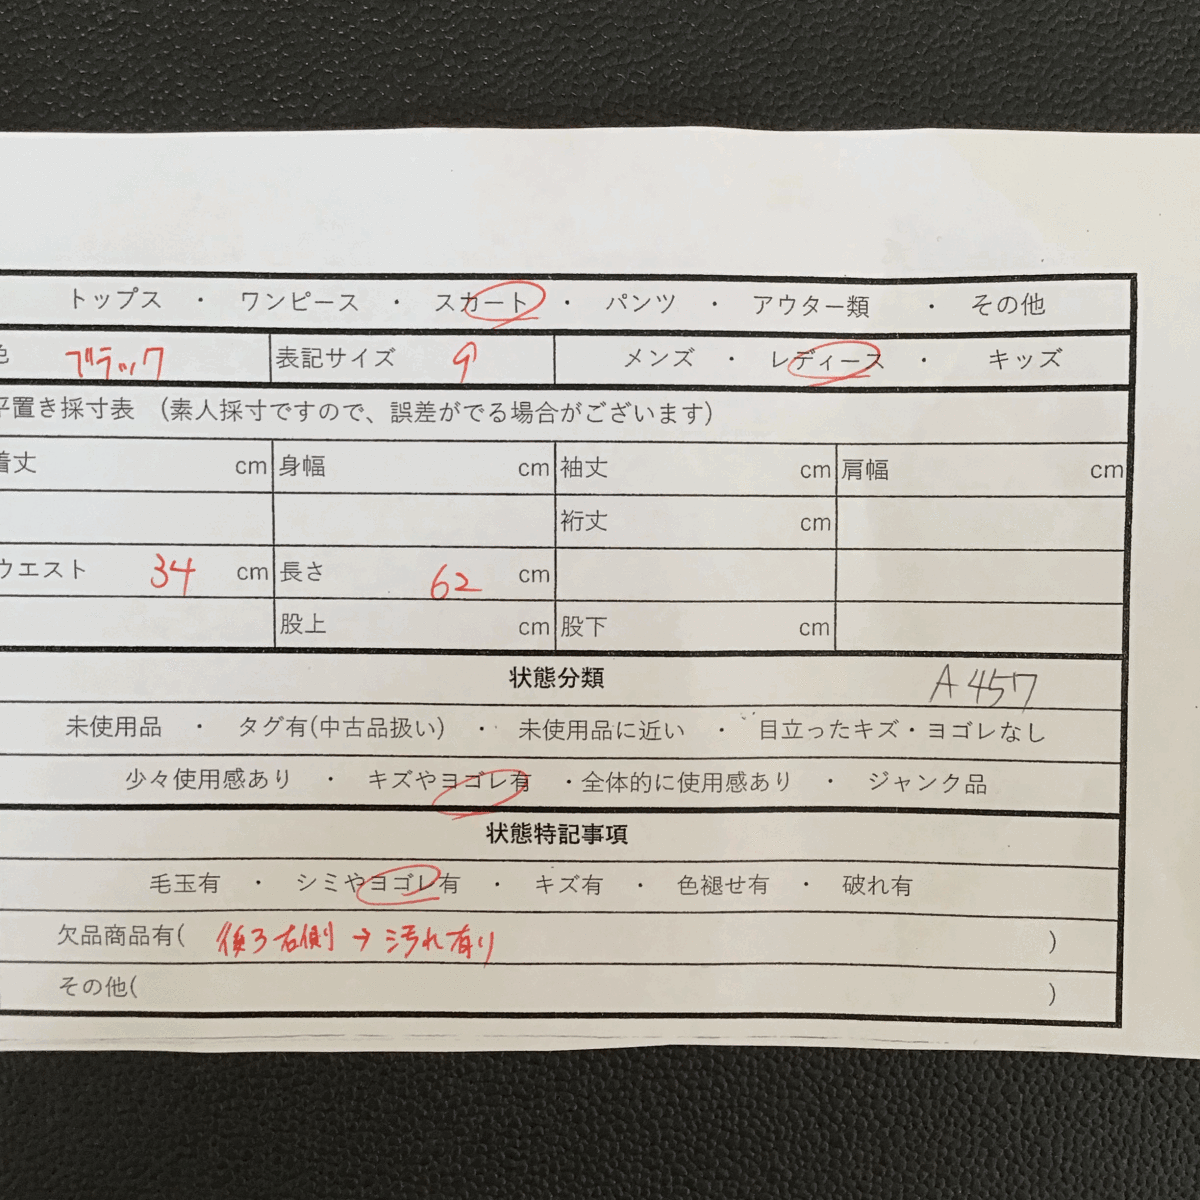 トップス ・ ワンピース ・ スカート ・ パンツ ・ アウター類 ・ その他
色 ブラック 表記サイズ 9 メンズ ・ レディース ・ キッズ
平置き採寸表 (素人採寸ですので、誤差がでる場合がございます)
着丈 cm 身幅 cm 袖丈 cm 肩幅 cm
裄丈 cm
ウエスト 34 cm 長さ 62 cm
股上 cm 股下 cm
状態分類 A457
未使用品 ・ タグ有(中古品扱い) ・ 未使用品に近い ・ 目立ったキズ・ヨゴレなし
少々使用感あり ・ キズやヨゴレ有 ・全体的に使用感あり ・ ジャンク品
状態特記事項
毛玉有 ・ シミやヨゴレ有 ・ キズ有 ・ 色褪せ有 ・ 破れ有
欠品商品有( 後ろ右側 → 汚れ有り )
その他( )